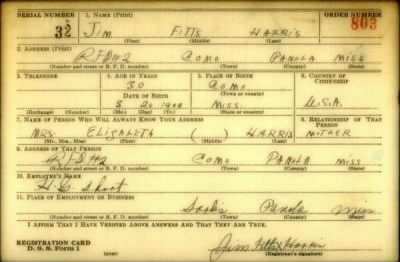 SERIAL NUMBER 1. NAME (Print) ORDER NUMBER
32 JIM FITTS HARRIS 803
(First) (Middle) (Last)
2. ADDRESS (Print)
RFD#2 COMO PANOLA MISS
(Number and street or R. F. D. number) (Town) (County) (State)
3. TELEPHONE 4. AGE IN YEARS 5. PLACE OF BIRTH 6. COUNTRY OF CITIZENSHIP
30 COMO
DATE OF BIRTH (Town or county)
20 MISS. U.S.A.
(Exchange) (Number) (Mo.) (Day) (Yr.) (State or country)
7. NAME OF PERSON WHO WILL ALWAYS KNOW YOUR ADDRESS 8. RELATIONSHIP OF THAT PERSON
MRS. ELIZABETH ( ) HARRIS MOTHER
(Mr., Mrs., Miss) (First) (Middle) (Last)
9. ADDRESS OF THAT PERSON
RFD#2 COMO PANOLA MISS
(Number and street or R. F. D. number) (Town) (County) (State)
10. EMPLOYER'S NAME
H.C. Short
11. PLACE OF EMPLOYMENT OR BUSINESS
Panola Miss
(Number and street or R. F. D. number) (Town) (County) (State)
I AFFIRM THAT I HAVE VERIFIED ABOVE ANSWERS AND THAT THEY ARE TRUE.
REGISTRATION CARD
D. S. S. Form 1 (over) Jim Fitts Harris
(Registrant's signature)